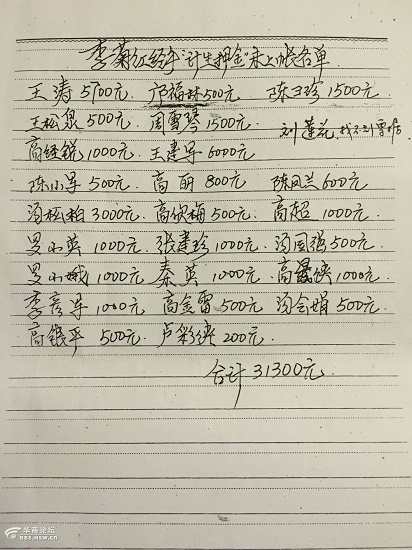 李菊红经手"计生押金"未上帐名单
王涛 5700元. 邝福林500元. 陈卫珍 1500元
王松泉 500元. 周雪琴 1500元. 刘莲花, 找不到票据
高经锐 1000元. 王建军 6000元
陈小军 500元. 高丽 800元 陈凤兰 600元
汤松柏 3000元. 高欣梅 500元. 高超 1000元
罗小英 1000元. 张建珍 1000元. 汤周强 500元
罗小娥 1000元. 秦英 1000元. 高侠 1000元
李彦军 1000元 高金雷 500元 汤会娟 500元
高银平 500元. 卢彩侠 200元
合计 31300元.
华商论坛
BBS.HSW.CN